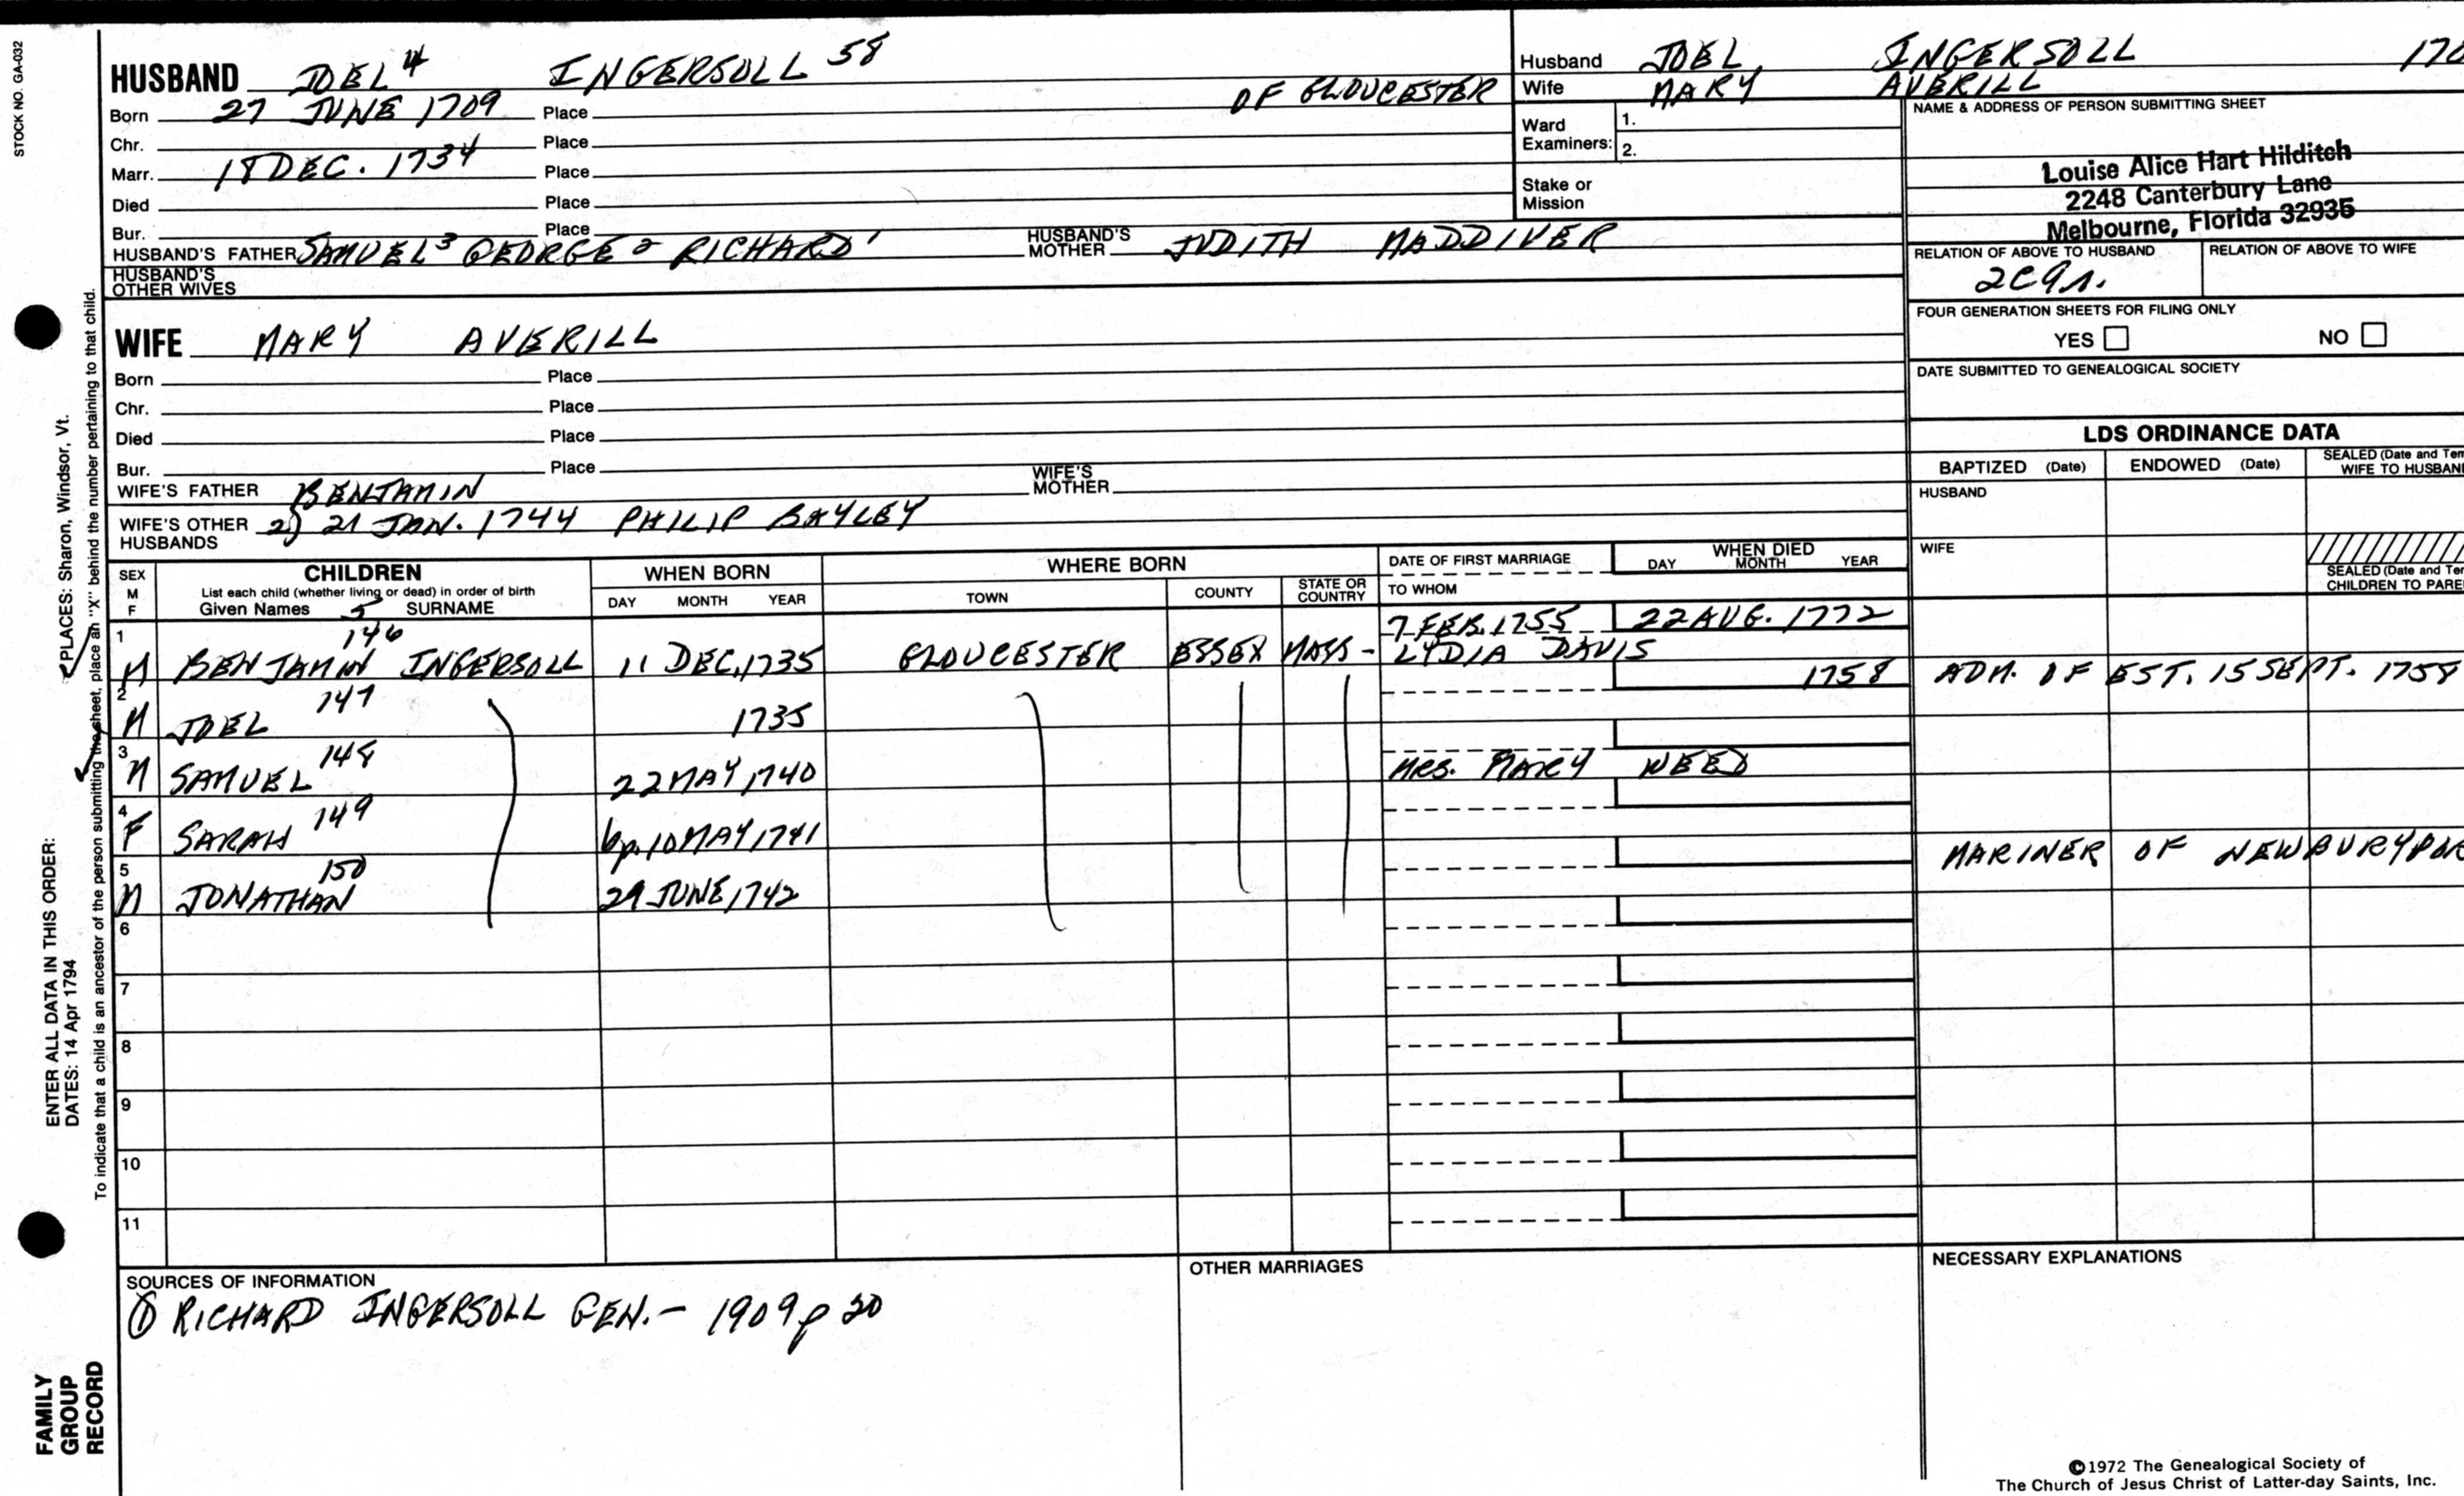 STOCK NO. GA-032
HUSBAND JOEL 4 INGERSOLL 58
Born 27 JUNE 1709 Place OF GLOUCESTER
Chr. Place
Marr. 18 DEC. 1734 Place
Died Place
Bur. Place
HUSBAND'S FATHER SAMUEL 3 GEORGE 2 RICHARD 1 HUSBAND'S MOTHER JUDITH MADDIVER
HUSBAND'S OTHER WIVES
Husband JOEL INGERSOLL 170
Wife MARY AVERILL
Ward Examiners: 1.
2.
Stake or Mission
NAME & ADDRESS OF PERSON SUBMITTING SHEET
Louise Alice Hart Hilditch
2248 Canterbury Lane
Melbourne, Florida 32935
RELATION OF ABOVE TO HUSBAND RELATION OF ABOVE TO WIFE
2C9r.
FOUR GENERATION SHEETS FOR FILING ONLY
YES NO
DATE SUBMITTED TO GENEALOGICAL SOCIETY
WIFE MARY AVERILL
Born Place
Chr. Place
Died Place
Bur. Place
WIFE'S FATHER BENJAMIN WIFE'S MOTHER
WIFE'S OTHER HUSBANDS 2) 21 JAN. 1744 PHILIP BAYLEY
LDS ORDINANCE DATA
BAPTIZED (Date) ENDOWED (Date) SEALED (Date and Tem
WIFE TO HUSBAN
HUSBAND
WIFE
SEALED (Date and Tem
CHILDREN TO PARE
SEX M F
CHILDREN
List each child (whether living or dead) in order of birth
Given Names 5 SURNAME
WHEN BORN
DAY MONTH YEAR
WHERE BORN
TOWN COUNTY STATE OR COUNTRY
DATE OF FIRST MARRIAGE
TO WHOM
WHEN DIED
DAY MONTH YEAR
1 M BENJAMIN 146 INGERSOLL 11 DEC. 1735 GLOUCESTER ESSEX MASS- 7 FEB. 1755 LYDIA DAVIS 22 AUG. 1772
2 M JOEL 147 1735 1758 ADM. OF EST. 15 SEPT. 1758
3 M SAMUEL 148 22 MAY 1740 MRS. MARY WEED
4 F SARAH 149 bp. 10 MAY 1741
5 M JONATHAN 150 29 JUNE 1742 MARINER OF NEWBURYPOR
6
7
8
9
10
11
SOURCES OF INFORMATION
① RICHARD INGERSOLL GEN.- 1909 p 20
OTHER MARRIAGES
NECESSARY EXPLANATIONS
©1972 The Genealogical Society of
The Church of Jesus Christ of Latter-day Saints, Inc.
ENTER ALL DATA IN THIS ORDER:
DATES: 14 Apr 1794
PLACES: Sharon, Windsor, Vt.
To indicate that a child is an ancestor of the person submitting the sheet, place an "X" behind the number pertaining to that child.
FAMILY
GROUP
RECORD